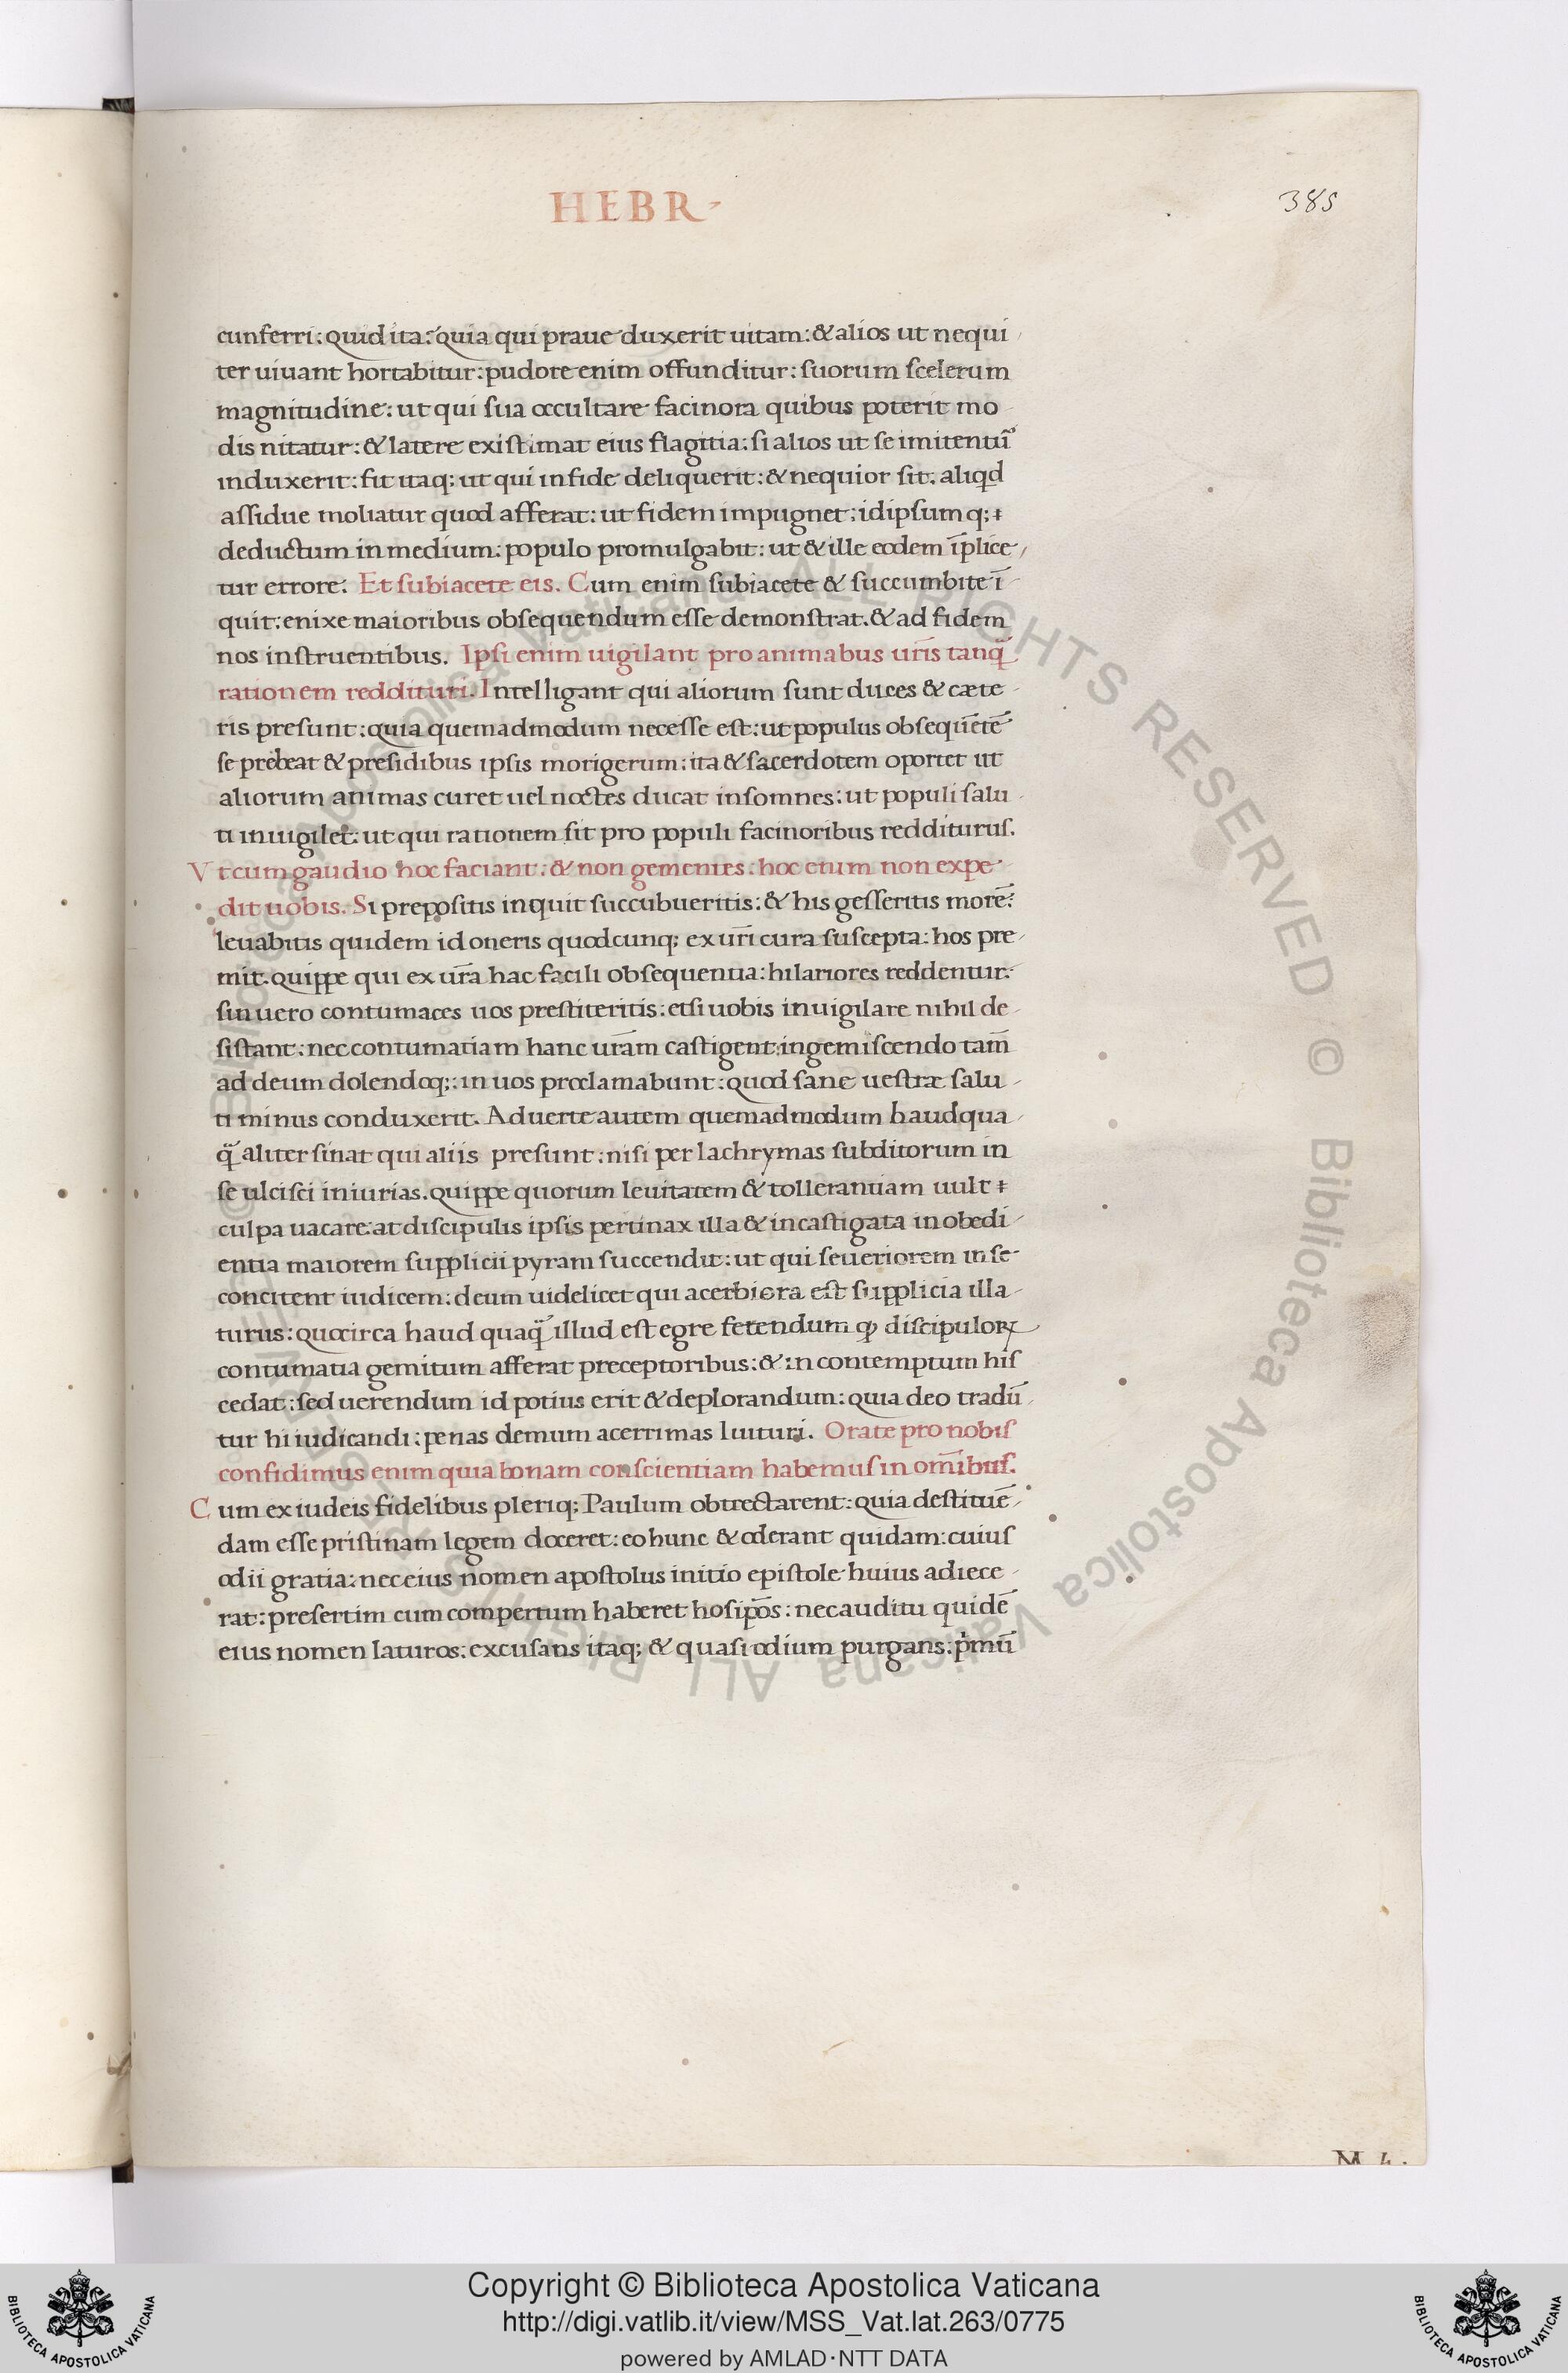 HEBR
385
cunferri: quid ita: quia qui praue duxerit uitam: & alios ut nequi
ter uiuant hortabitur: pudore enim offunditur: suorum scelerum
magnitudine: ut qui sua occultare facinora quibus poterit mo
dis nitatur: & latere existimat eius flagitia: si alios ut se imitentur̃
induxerit: fit itaq; ut qui in fide deliquerit: & nequior sit. aliqd
assidue moliatur quod afferat: ut fidem impugnet: idipsumq;
deductum in medium: populo promulgabit: ut & ille eodem īplice
tur errore. Et subiacete eis. Cum enim subiacete & succumbite ī
quit: enixe maioribus obsequendum esse demonstrat. & ad fidem
nos instruentibus. Ipsi enim uigilant pro animabus ur̄is tanq̃
rationem reddituri. Intelligant qui aliorum sunt duces & cæte
ris presunt: quia quemadmodum necesse est: ut populus obsequētē
se prebeat & presidibus ipsis morigerum: ita & sacerdotem oportet ut
aliorum animas curet uel noctes ducat insomnes: ut populi salu
ti inuigilet: ut qui rationem sit pro populi facinoribus redditurus.
Vt cum gaudio hoc faciant: & non gementes. hoc enim non expe
dit uobis. Si prepositis inquit succubueritis: & his gesseritis morē:
leuabitis quidem id oneris quodcunq; ex ur̄i cura suscepta: hos pre
mit. quippe qui ex ur̄a hac facili obsequentia: hilariores reddentur:
sin uero contumaces uos prestiteritis: etsi uobis inuigilare nihil de
sistant: nec contumatiam hanc ur̄am castigent: ingemiscendo tam̄
ad deum dolendoq;: in uos proclamabunt: quod sane uestræ salu
ti minus conduxerit. Aduerte autem quemadmodum haudqua
q̃ aliter sinat qui aliis presunt: nisi per lachrymas subditorum in
se ulcisci iniurias. quippe quorum leuitatem & tollerantiam uult
culpa uacare: at discipulis ipsis pertinax illa & incastigata inobedi
entia maiorem supplicii pyram succendit: ut qui seueriorem in se
concitent iudicem: deum uidelicet qui acerbiora est supplicia illa
turus: quocirca haud quaq̃ illud est egre ferendum ꝙ discipuloꝝ
contumatia gemitum afferat preceptoribus: & in contemptum his
cedat: sed uerendum id potius erit & deplorandum: quia deo tradū
tur hi iudicandi: penas demum acerrimas luituri. Orate pro nobis
confidimus enim quia bonam conscientiam habemus in om̄ibus.
Cum ex iudeis fidelibus pleriq; Paulum obtrectarent: quia destituē
dam esse pristinam legem doceret: eo hunc & oderant quidam: cuius
odii gratia: nec eius nomen apostolus initio epistole huius adiece
rat: presertim cum compertum haberet hos ip̄os: nec auditu quidē
eius nomen laturos: excusans itaq; & quasi odium purgans: pͥmū
© Biblioteca Apostolica Vaticana ALL RIGHTS RESERVED © Biblioteca Apostolica Vaticana ALL RIGHTS RESERVED
Copyright © Biblioteca Apostolica Vaticana
http://digi.vatlib.it/view/MSS_Vat.lat.263/0775
powered by AMLAD·NTT DATA
BIBLIOTECA APOSTOLICA VATICANA
BIBLIOTECA APOSTOLICA VATICANA